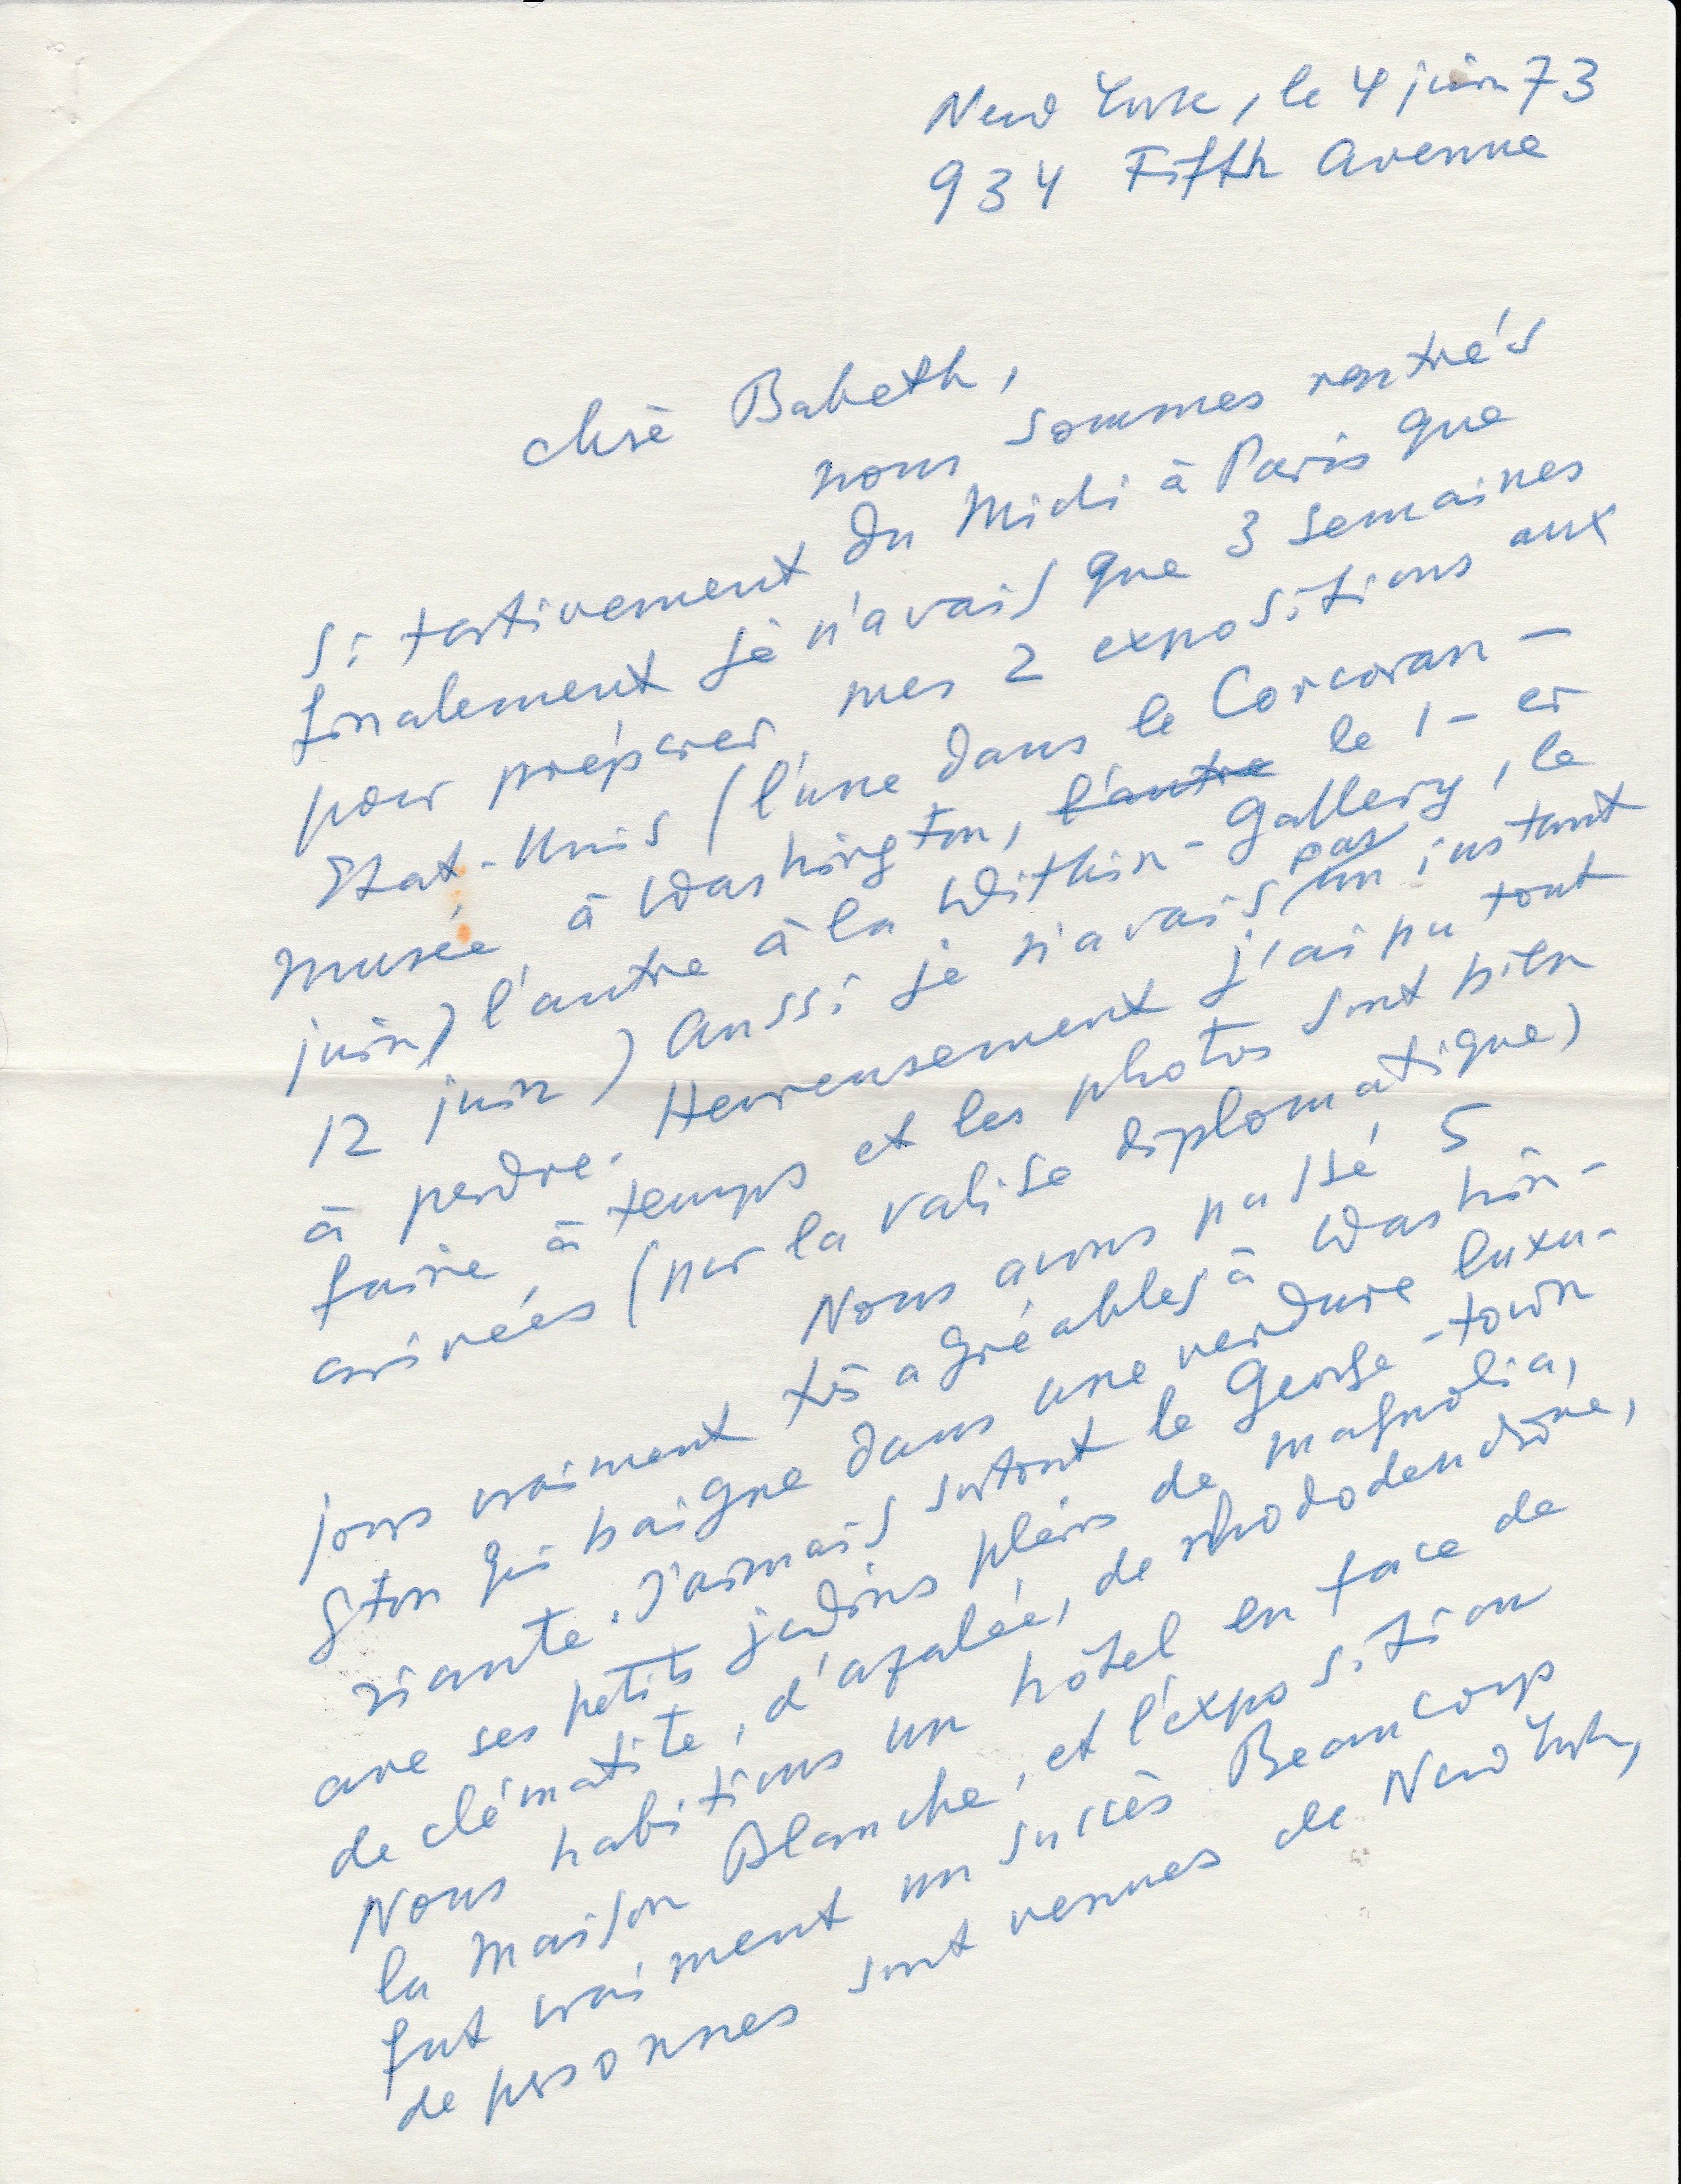 New York, le 4 juin 73
934 Fifth Avenue
chère Babeth,
nous sommes rentrés
si tartivement du Midi à Paris que
finalement je n'avais que 3 semaines
pour préparer mes 2 expositions aux
Etat-Unis (l'une dans le Corcoran-
Musée, à Washington, l'autre le 1-er
juin) l'autre à la Witkin-Gallery, le
12 juin) Aussi je n'avais pas un instant
à perdre. Heureusement j'ai pu tout
faire à temps et les photos sont bien
arrivées (par la valise diplomatique)
Nous avons passé 5
jours vraiment très agréables à Washin-
gton qui baigne dans une verdure luxu-
riante. J'aimais surtout le George-town
ave ses petits jardins pleins de magnolia,
de clématite, d'azalée, de rhododendrône,
Nous habitions un hôtel en face de
la Maison Blanche, et l'exposition
fut vraiment un succès Beaucoup
de personnes sont venues de New York,